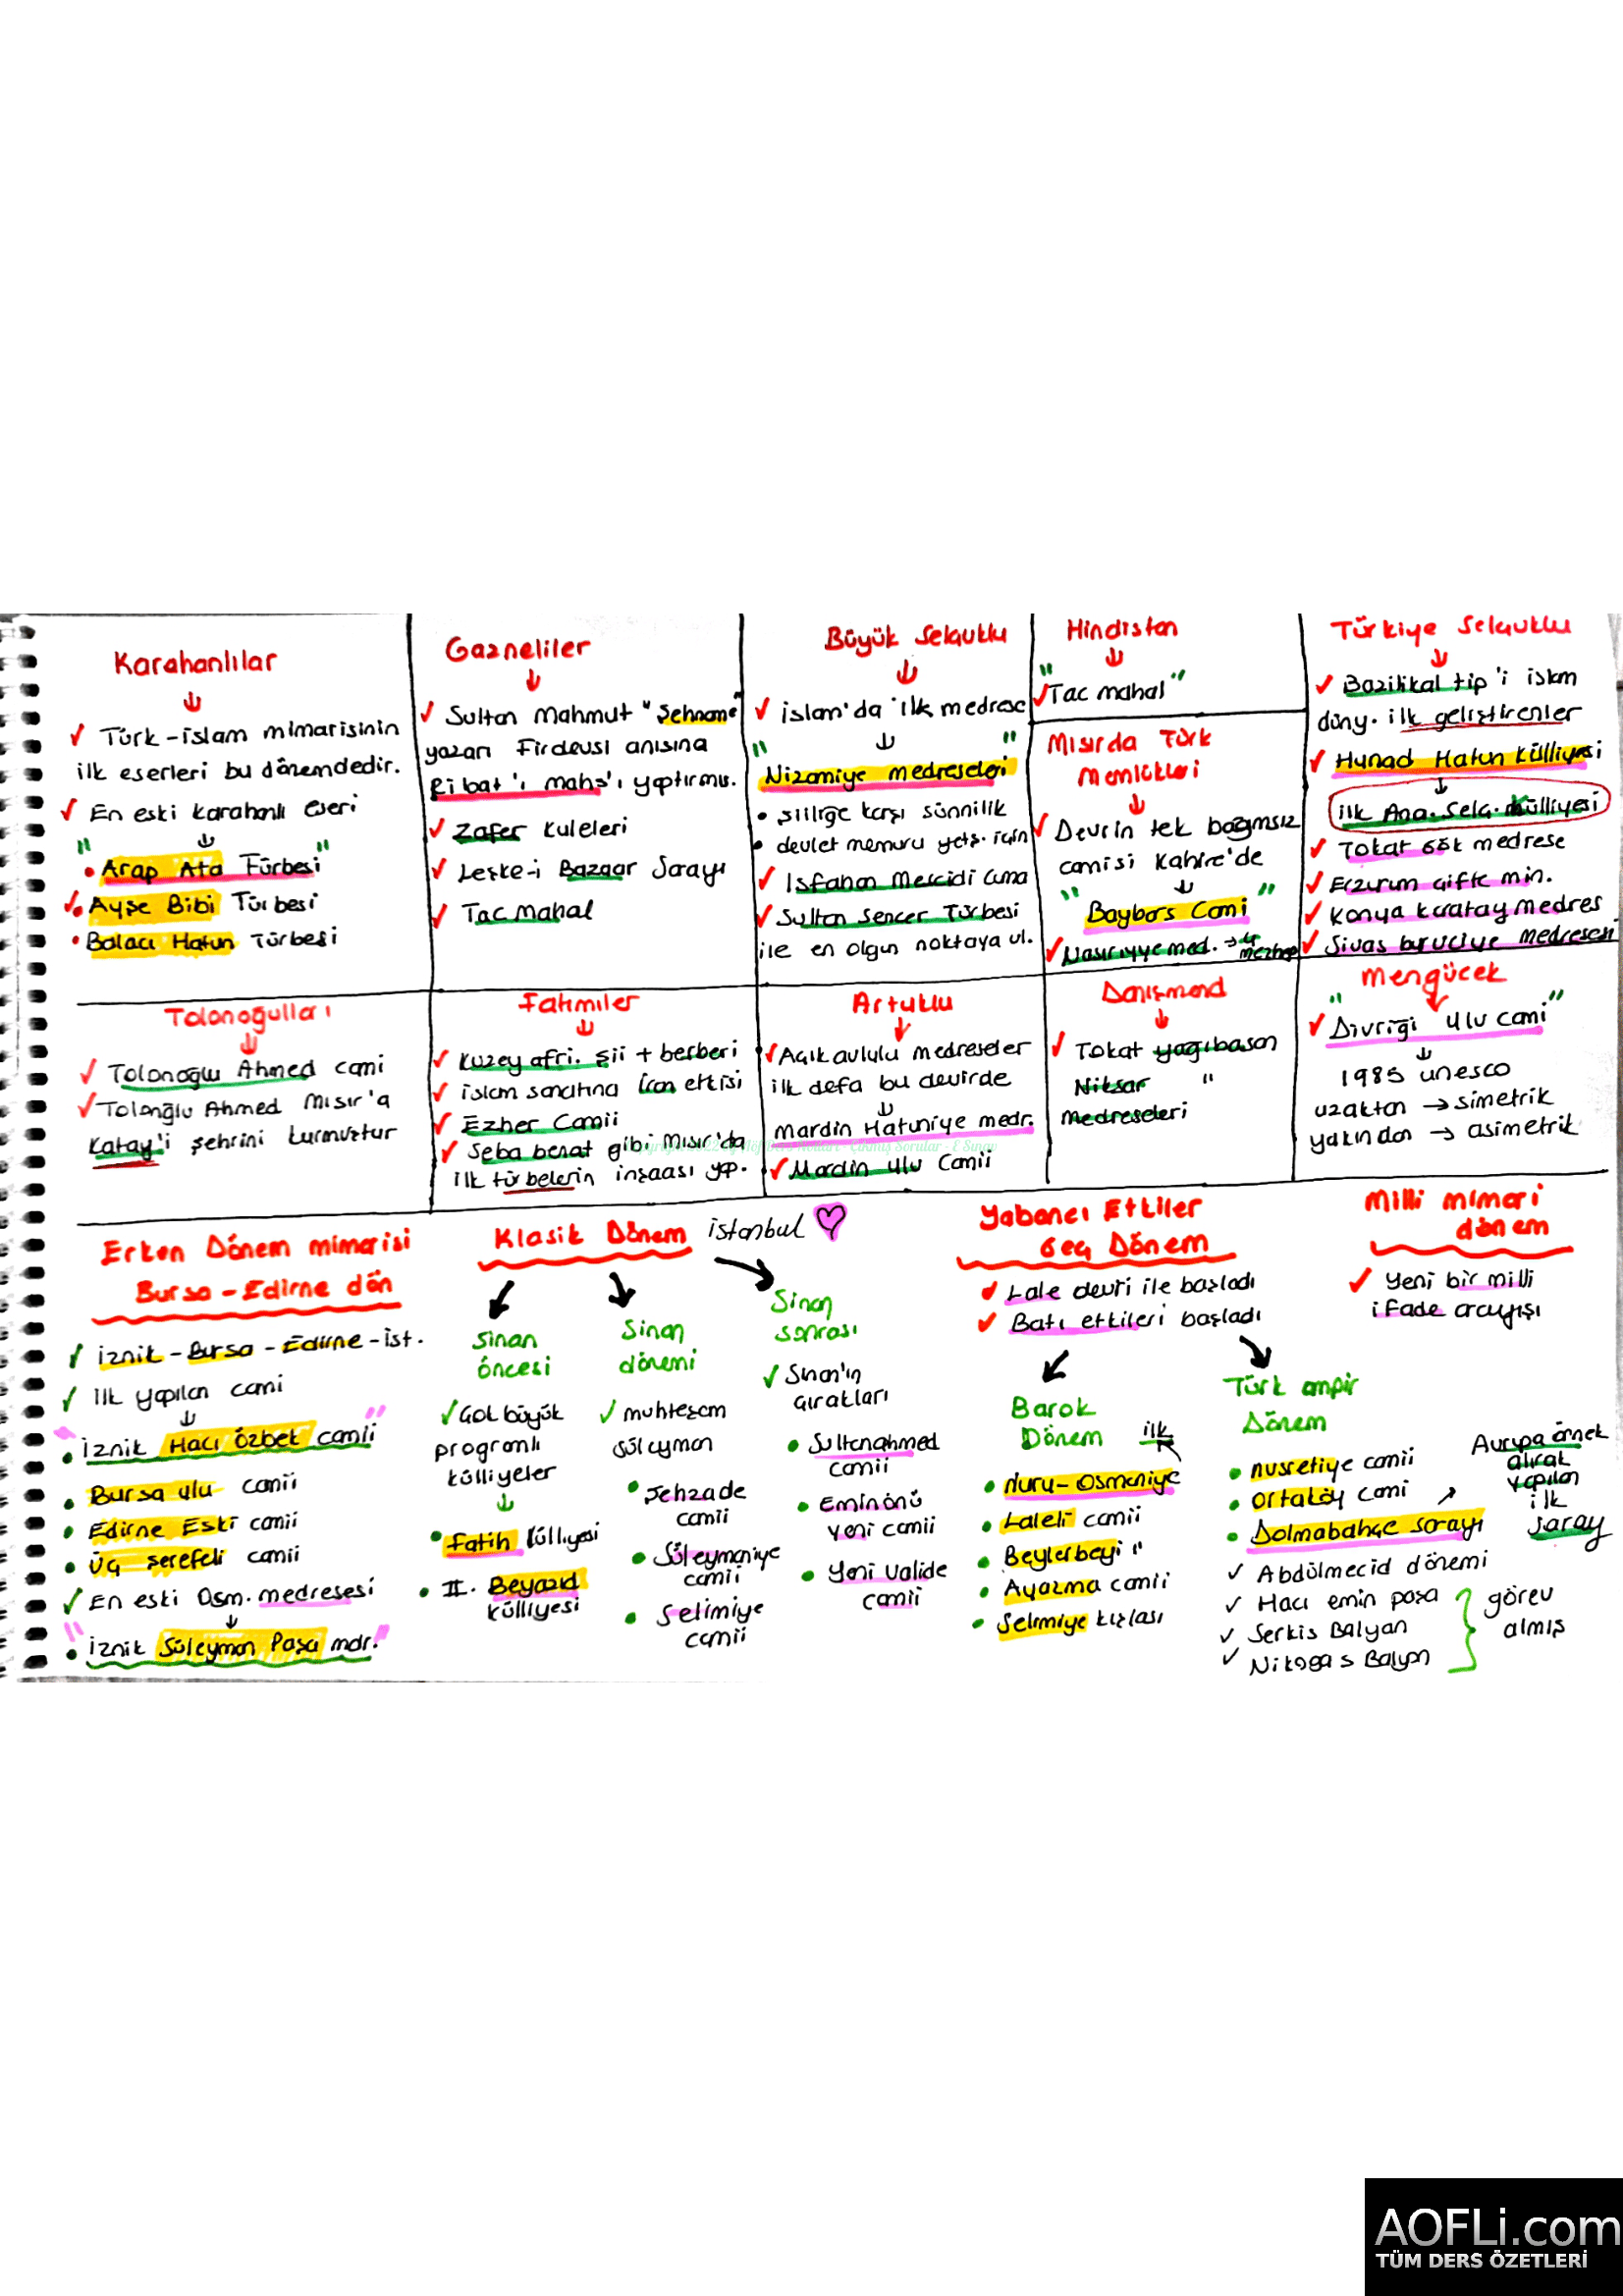 Karahanlılar
✓ Türk-islam mimarisinin
ilk eserleri bu dönemdedir.
✓ En eski karahanlı eseri
"• Arap Ata Türbesi"
✓• Ayşe Bibi Türbesi
• Balacı Hatun Türbesi
Gazneliler
✓ Sultan Mahmut "Şehname"
yazarı Firdevsi anısına
Ribat'ı mahs'ı yaptırmış.
✓ Zafer kuleleri
✓ Leşke-i Bazaar Sarayı
✓ Tac Mahal
Büyük Selçuklu
✓ islam'da ilk medrese
"Nizamiye medreseleri"
• şiiliğe karşı sünnilik
• devlet memuru yetş. için
✓ Isfahan Mescidi Cuma
✓ Sultan Sencer Türbesi
ile en olgun noktaya ul.
Hindistan
✓ "Tac mahal"
Mısırda Türk
Memlükleri
✓ Devrin tek bağımsız
camisi Kahire'de
"Baybars Cami"
✓ Nasıriyye med. → 4 mezhep
Türkiye Selçuklu
✓ Bazilikal tip'i islam
düny. ilk geliştirenler
✓ Hunad Hatun Külliyesi
ilk Ana. Selç. külliyesi
✓ Tokat Gök medrese
✓ Erzurum çifte min.
✓ Konya karatay medres
✓ Sivas buruciye medresesi
Tolonoğulları
✓ Tolonoğlu Ahmed cami
✓ Tolonğlu Ahmed Mısır'a
Katay'i şehrini kurmuştur
Fatımiler
✓ Kuzey afri. şii + berberi
✓ islam sanatına İran etkisi
✓ Ezher Camii
✓ Seba benat gibi Mısır'da
ilk türbelerin inşaası yap.
Artuklu
✓ Açık avlulu medreseler
ilk defa bu devirde
Mardin Hatuniye medr.
✓ Mardin ulu Camii
Danişmend
✓ Tokat yağıbasan
Niksar "
medreseleri
Mengücek
✓ "Divriği ulu cami"
1985 unesco
uzaktan → simetrik
yakından → asimetrik
Erken Dönem mimarisi
Bursa - Edirne dön
✓ iznik - Bursa - Edirne - ist.
✓ ilk yapılan cami
"• iznik Hacı Özbek camii"
• Bursa ulu camii
• Edirne Eski camii
• Üç şerefeli camii
✓ En eski Osm. medresesi
"• iznik Süleyman Paşa mdr."
Klasik Dönem istanbul ♡
Sinan
öncesi
✓ Çok büyük
programlı
külliyeler
• Fatih külliyesi
• II. Beyazıd
külliyesi
Sinan
dönemi
✓ muhteşem
süleyman
• Şehzade
camii
• Süleymaniye
camii
• Selimiye
camii
Sinan
sonrası
✓ Sinan'ın
çırakları
• Sultanahmed
camii
• Eminönü
Yeni camii
• Yeni valide
camii
Yabancı Etkiler
Geç Dönem
✓ Lale devri ile başladı
✓ Batı etkileri başladı
Barok
Dönem
ilk
• Nuru-Osmaniye
• Laleli camii
• Beylerbeyi "
• Ayazma camii
• Selimiye kışlası
Türk ampir
Dönem
• nusretiye camii
• Ortaköy cami
• Dolmabahçe sarayı
Avrupa örnek
alırak
yapılan
ilk
saray
✓ Abdülmecid dönemi
✓ Hacı emin paşa
✓ Serkis Balyan
✓ Nikogas Balyan
görev
almış
Milli mimari
dönem
✓ Yeni bir milli
ifade arayışı
AOFLi.com
TÜM DERS ÖZETLERİ